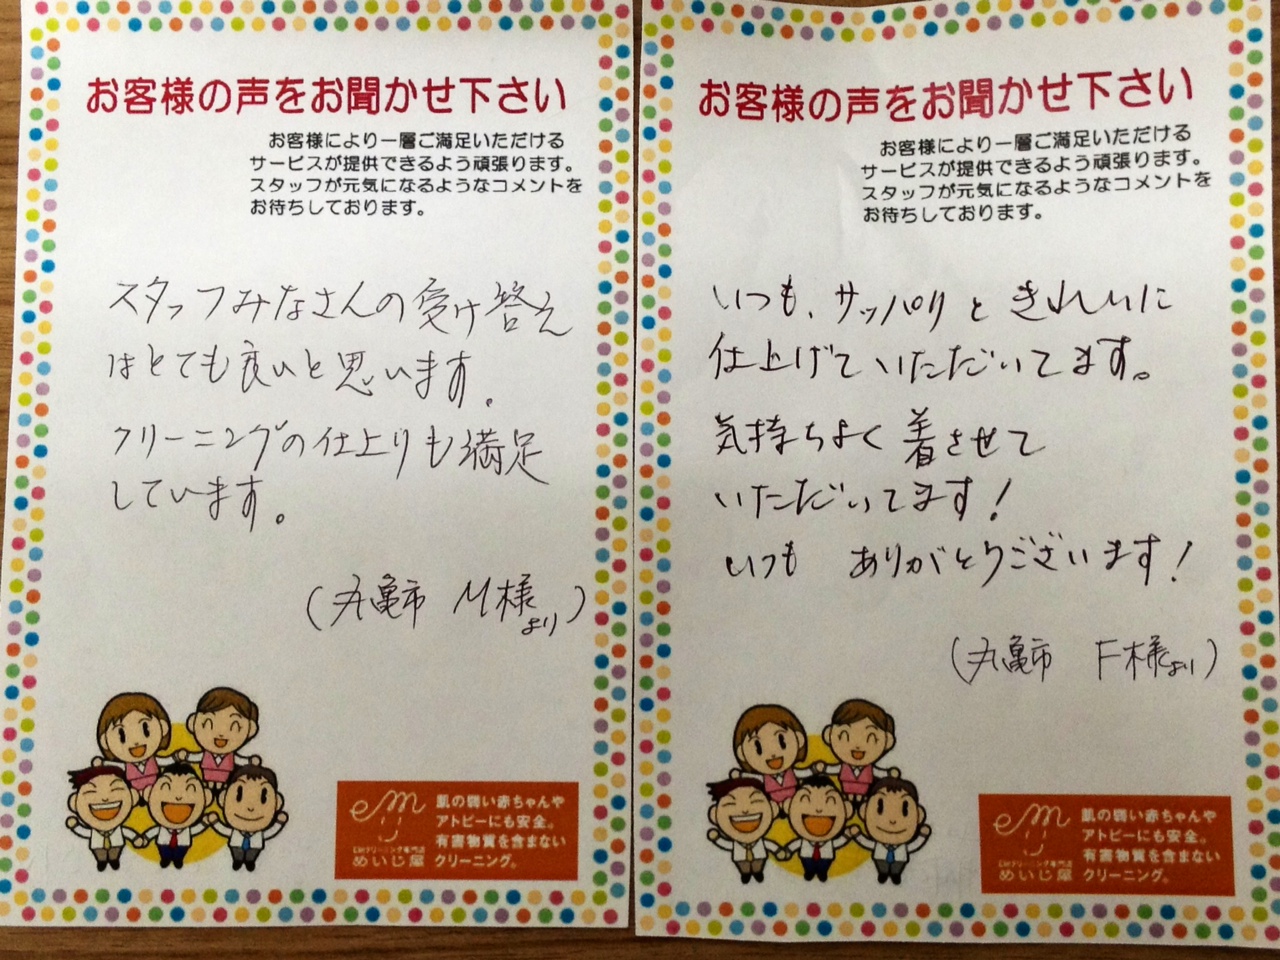 お客様の声をお聞かせ下さい
お客様により一層ご満足いただける
サービスが提供できるよう頑張ります。
スタッフが元気になるようなコメントを
お待ちしております。
スタッフみなさんの受け答え
はとても良いと思います。
クリーニングの仕上りも満足
しています。
(丸亀市 M様より)
em
めいじ屋
肌の弱い赤ちゃんや
アトピーにも安全。
有害物質を含まない
クリーニング。
お客様の声をお聞かせ下さい
お客様により一層ご満足いただける
サービスが提供できるよう頑張ります。
スタッフが元気になるようなコメントを
お待ちしております。
いつも、サッパリときれいに
仕上げていただいてます。
気持ちよく着させて
いただいてます!
いつも ありがとうございます!
(丸亀市 F様より)
em
めいじ屋
肌の弱い赤ちゃんや
アトピーにも安全。
有害物質を含まない
クリーニング。